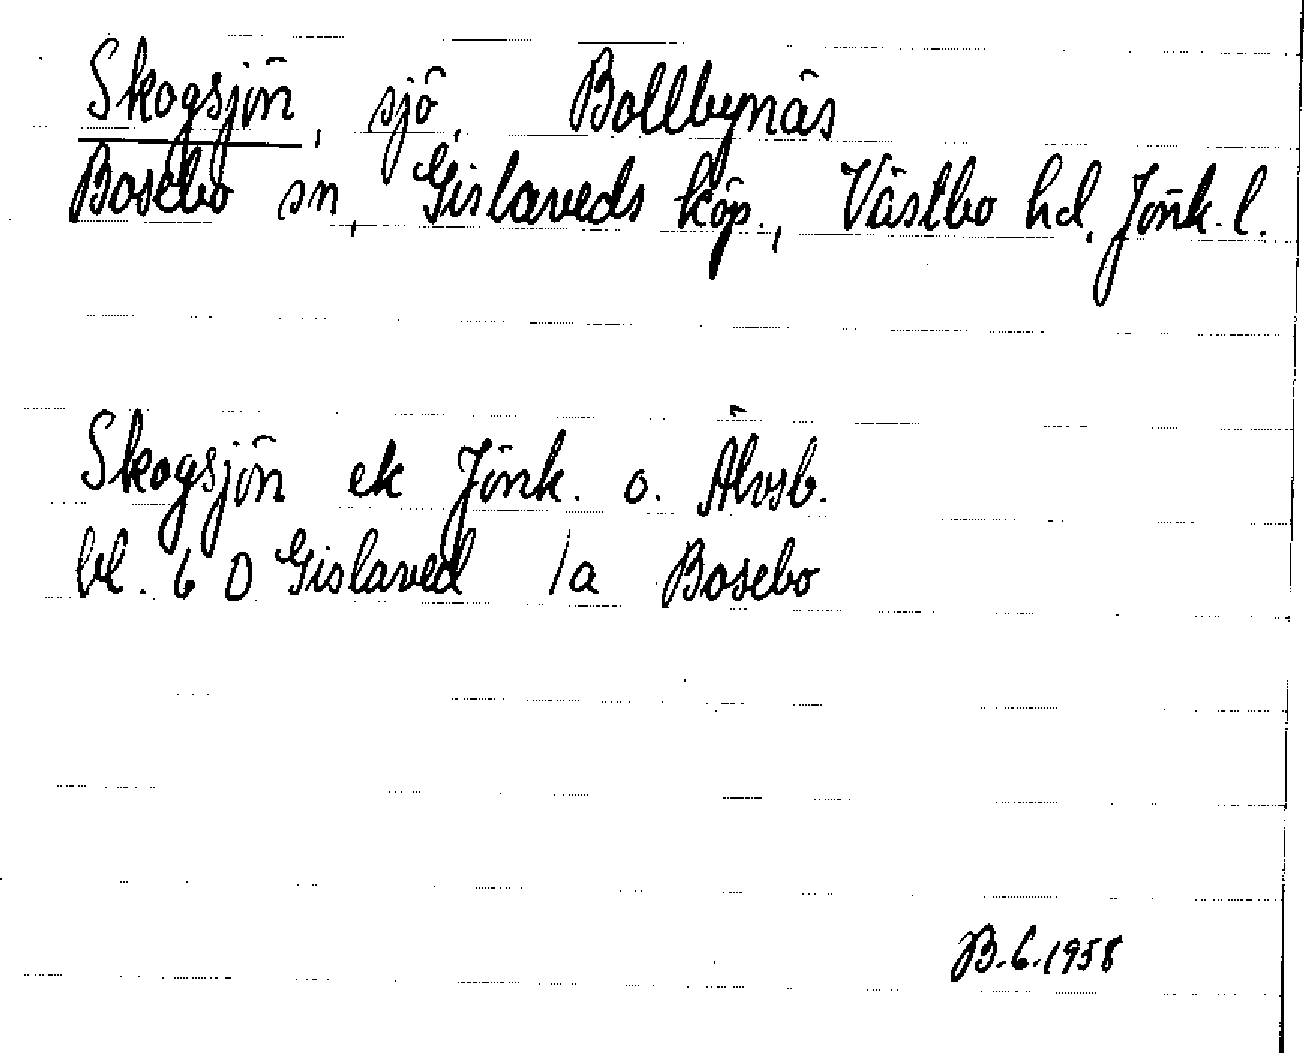 Skogsjön, sjö, Bollbynäs
Bosebo sn, Gislaveds köp., Västbo hd. Jönk. l.
Skogsjön ek Jönk. o. Älvsb.
bl. 6 D Gislaved 1a Bosebo
B.G.1958